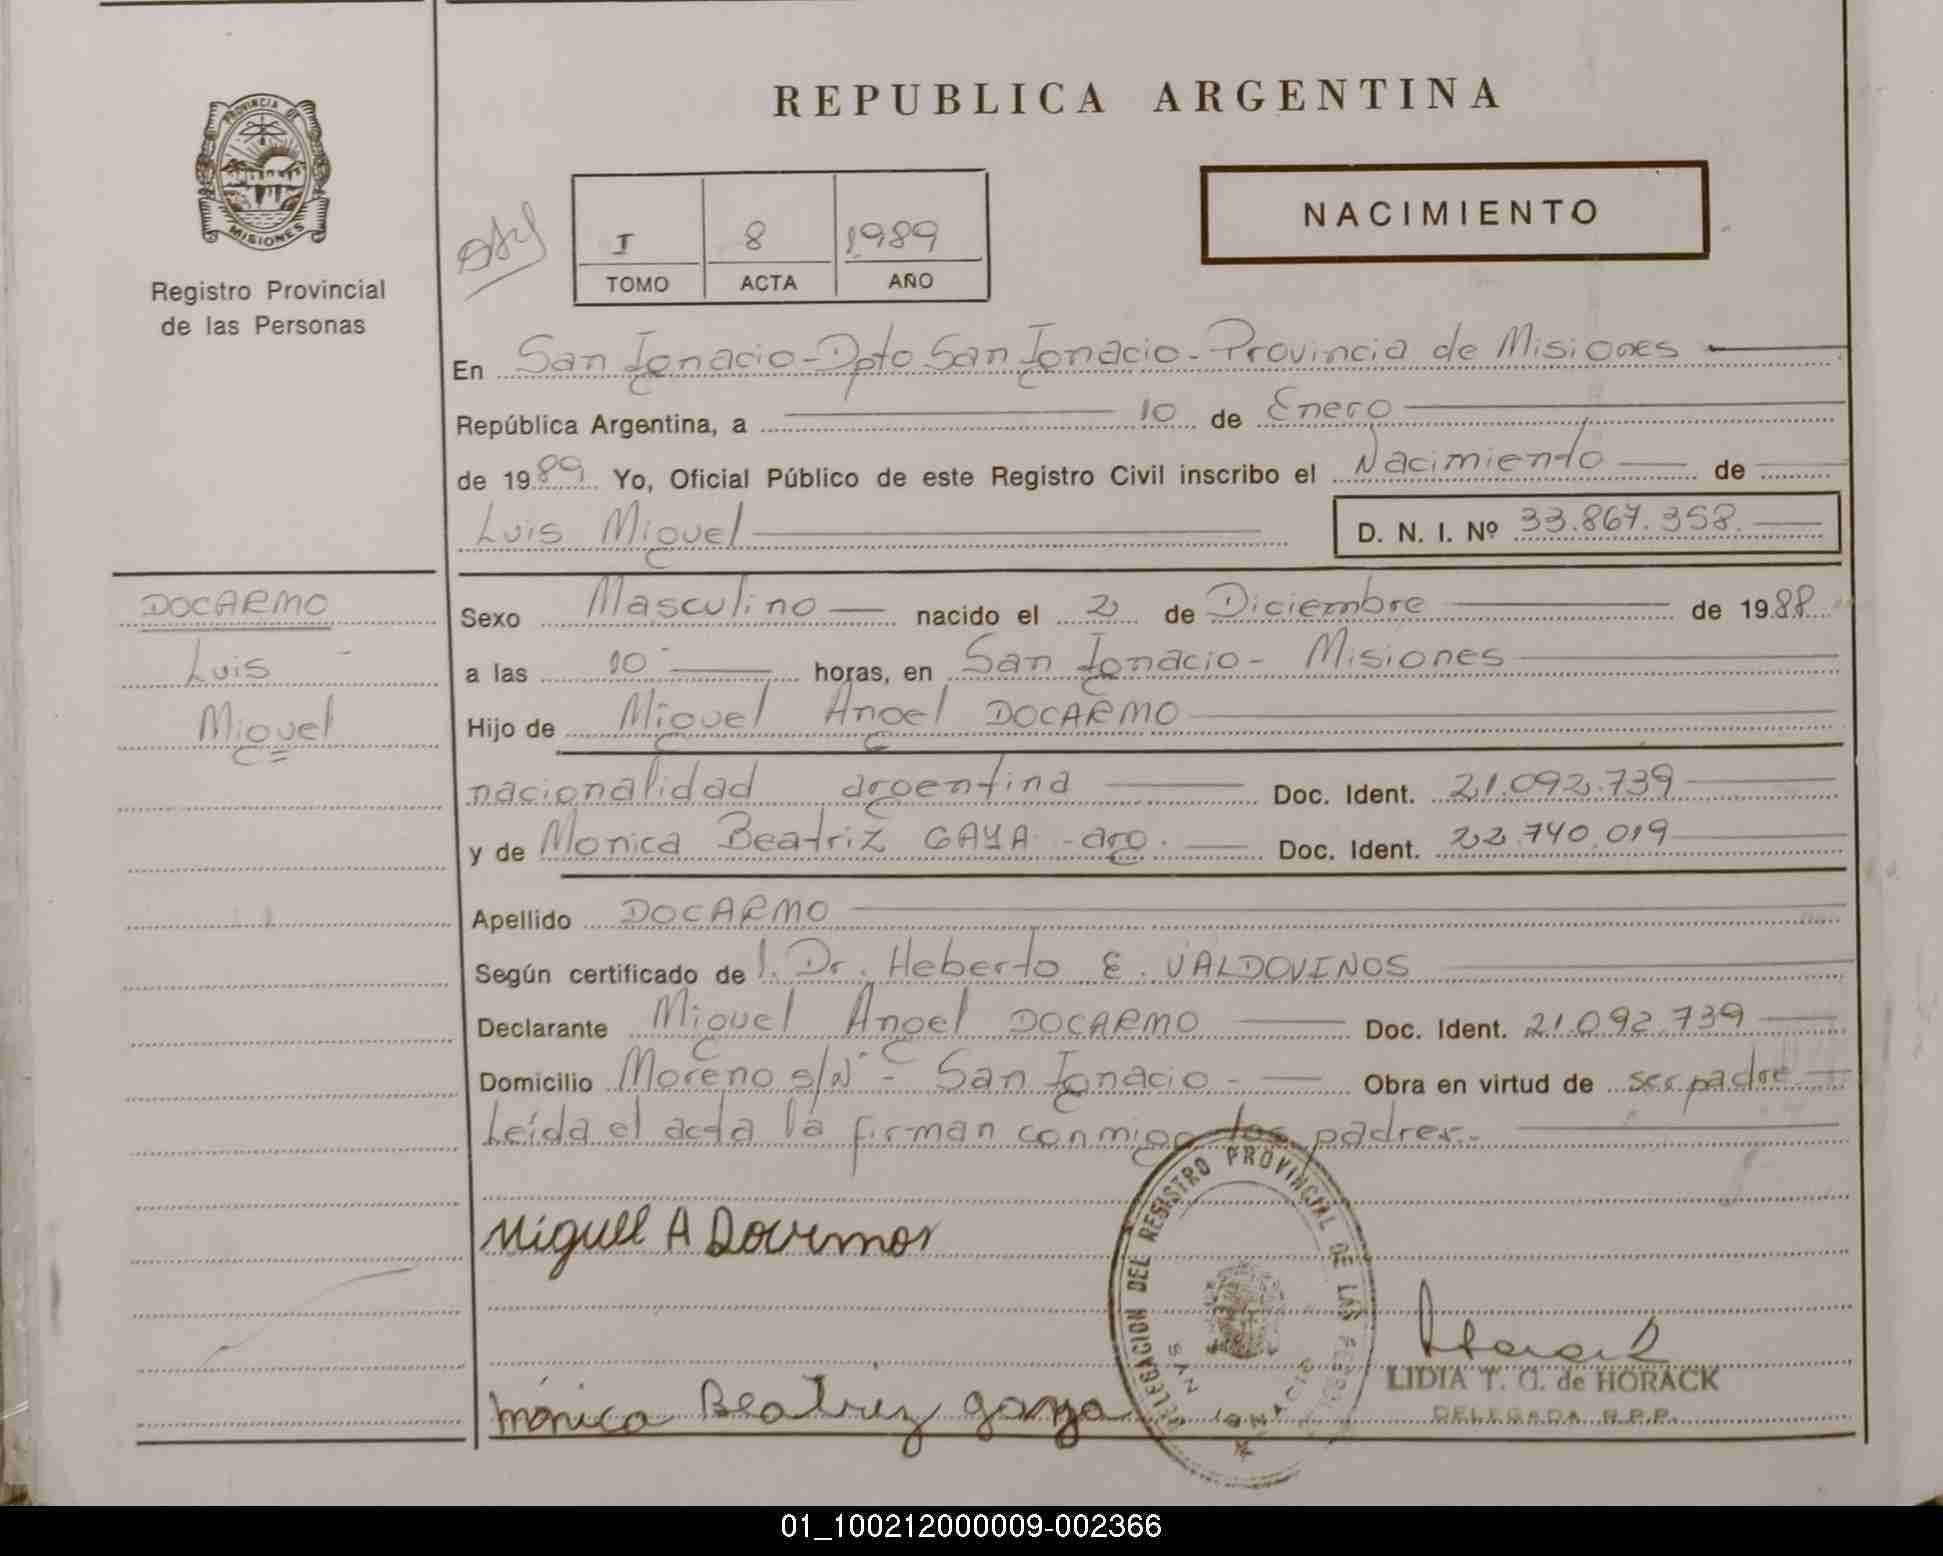 REPUBLICA ARGENTINA
PROVINCIA DE
MISIONES
Registro Provincial
de las Personas
I 8 1989
TOMO ACTA AÑO
NACIMIENTO
En San Ignacio - Dpto San Ignacio - Provincia de Misiones
República Argentina, a 10 de Enero
de 1989 Yo, Oficial Público de este Registro Civil inscribo el Nacimiento de
Luis Miguel D. N. I. Nº 33.867.358.
DOCARMO
Luis
Miguel
Sexo Masculino nacido el 2 de Diciembre de 1988
a las 10 horas, en San Ignacio - Misiones
Hijo de Miguel Angel DOCARMO
nacionalidad argentina Doc. Ident. 21.092.739
y de Monica Beatriz GAYA - arg. Doc. Ident. 22.740.019
Apellido DOCARMO
Según certificado de Dr. Heberto E. VALDOVINOS
Declarante Miguel Angel DOCARMO Doc. Ident. 21.092.739
Domicilio Moreno s/Nº - San Ignacio - Obra en virtud de ser padre
Leída el acta la firman conmigo los padres.-
Miguel A
DELEGACION DEL REGISTRO PROVINCIAL DE LAS PERSONAS
SAN IGNACIO
Horack
LIDIA T. G. de HORACK
DELEGADA R.P.P.
Mónica Beatriz gaya
01_100212000009-002366